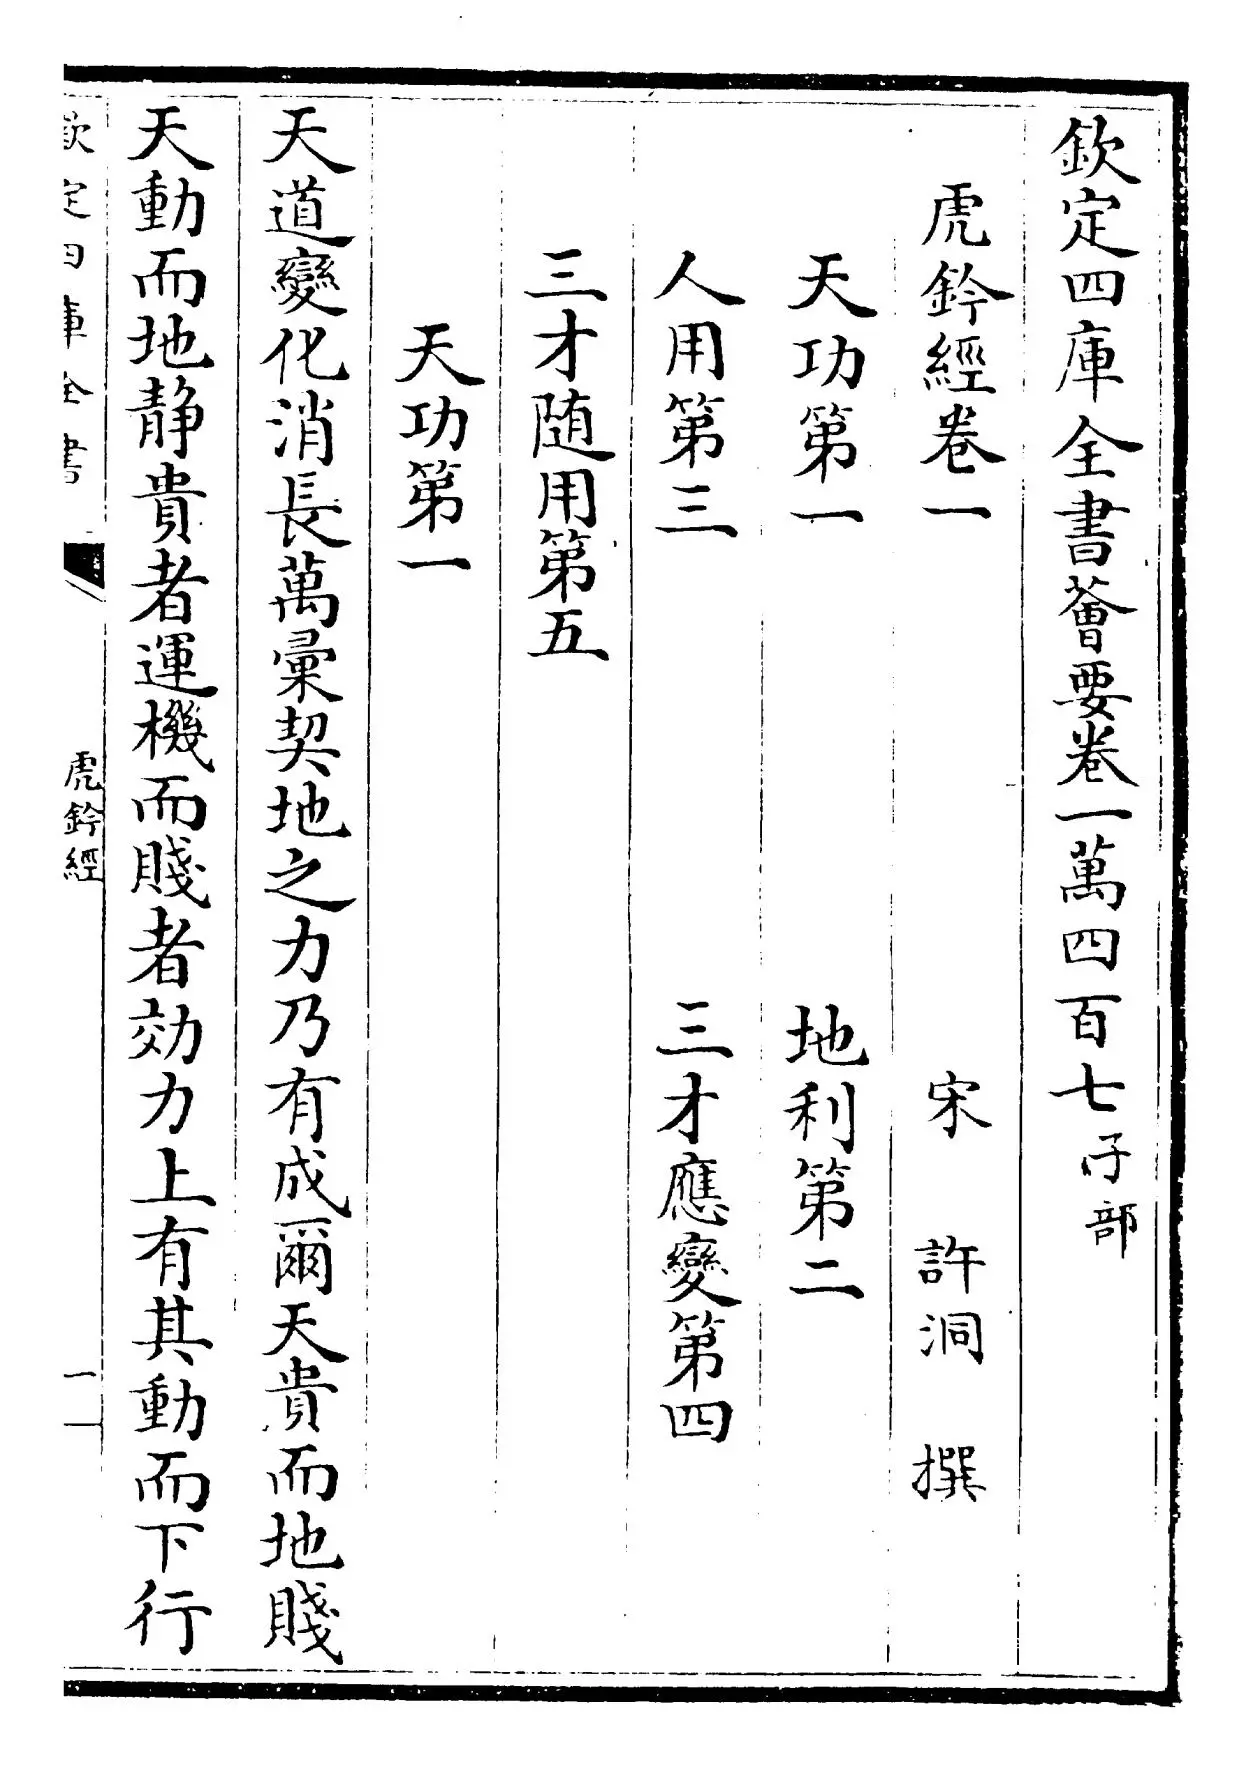 欽定四庫全書薈要卷一萬四百七子部
虎鈐經卷一 宋 許洞 撰
天功第一 地利第二
人用第三 三才應變第四
三才随用第五
天功第一
天道變化消長萬彙契地之力乃有成爾天貴而地賤
天動而地静貴者運機而賤者効力上有其動而下行
欽定四庫全書 虎鈐經 一